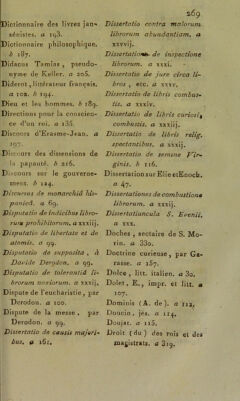 269
Dictionnaire des livres jansénistes. a 193.
Dictionnaire philosophique. b 187.
Didacus Tamias, pseudonyme de Keller. a 205.
Diderot, littérateur français. a 102. b 194.
Dieu et les hommes. b 189.
Directions pour la conscience d'un roi. a 135.
Discours d'Erasme-Jean. a 197.
Discours des dissensions de la papauté. b 216.
Discours sur le gouvernement. b 124.
Discursus de monarchiâ hispanicâ. a 69.
Disputatio de Indicibus librorum prohibitorum. a xxxiij.
Disputatio de libertate et de atomis. a 99.
Disputatio de supposito, à Davide Derodon. a 99.
Disputatio de tolerantiâ librorum noxiorum. a xxxij.
Dispute de l'eucharistie, par Derodon. a 100.
Dispute de la messe, par Derodon. a 99.
Dissertatio de causis majoribus. a 161.
Dissertatio contra malorum librorum abundantiam. a xxxvij.
Dissertatio de inspectione librorum. a xxxi.
Dissertatio de jure circa libros, etc. a xxxv.
Dissertatio de libris combustis. a xxxiv.
Dissertatio de libris curiosis combustis. a xxxiij.
Dissertatio de libris relig. spectantibus. a xxxij.
Dissertatio de semine Virginis. b 116.
Dissertation sur Elie et Enoch. a 47.
Dissertationes de combustione librorum. a xxxij.
Dissertatiuncula S. Evenii. a xxx.
Doches, sectaire de S. Morin. a 330.
Doctrine curieuse, par Garasse. a 157.
Dolce, litt. italien. a 30.
Dolet, E., impr. et litt. a 107.
Dominis (A. de). a 112.
Doucin, jés. a 114.
Doujat. a 115.
Droit (du) des rois et des magistrats. a 319.